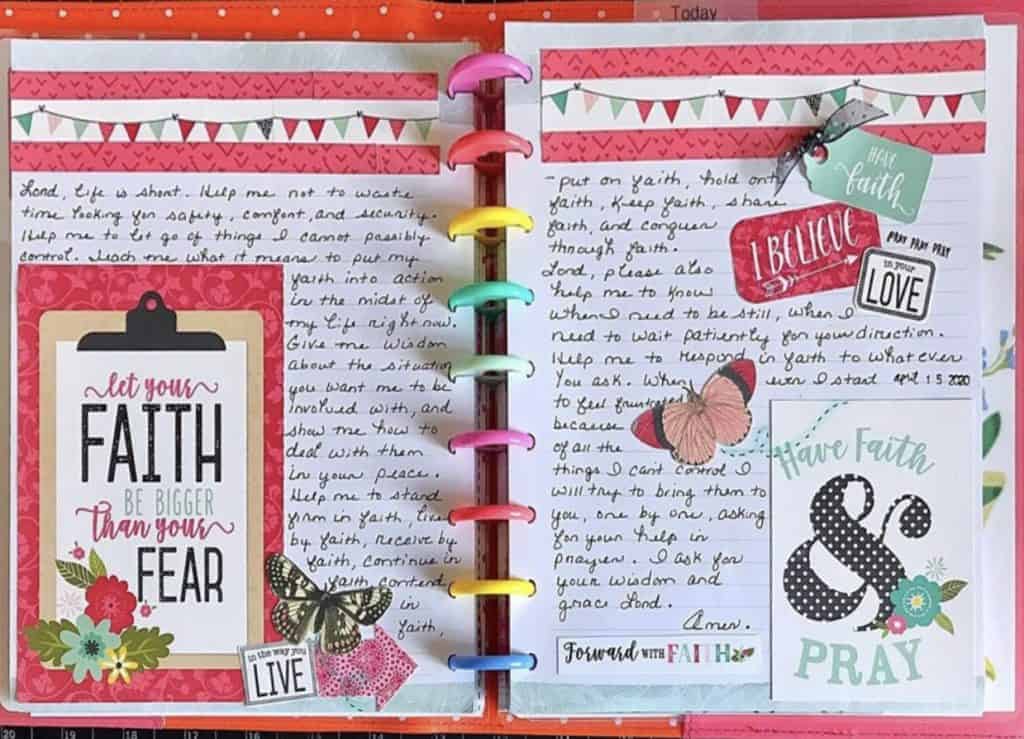 Today
Lord, life is short. Help me not to waste
time looking for safety, comfort, and security.
Help me to let go of things I cannot possibly
control. Teach me what it means to put my
faith into action
in the midst of
my life right now.
Give me wisdom
about the situation
you want me to be
involved with, and
show me how to
deal with them
in your peace.
Help me to stand
firm in faith, live
by faith, receive by
faith, continue in
faith contend
in
faith,
let your
FAITH
BE BIGGER
than your
FEAR
in the way you
LIVE
- put on faith, hold onto
faith, keep faith, share
faith, and conquer
through faith.
Lord, please also
help me to know
when I need to be still, when I
need to wait patiently for your direction.
Help me to respond in faith to what ever
You ask. When ever I start
to feel frustrated
because
of all the
things I cant control I
will try to bring them to
you, one by one, asking
for your help in
prayer. I ask for
your wisdom and
grace Lord.
Amen.
HAVE
faith
I BELIEVE
PRAY PRAY PRAY
in your
LOVE
april 15 2020
Have Faith
&
PRAY
Forward WITH FAITH
20 19 18 17 16